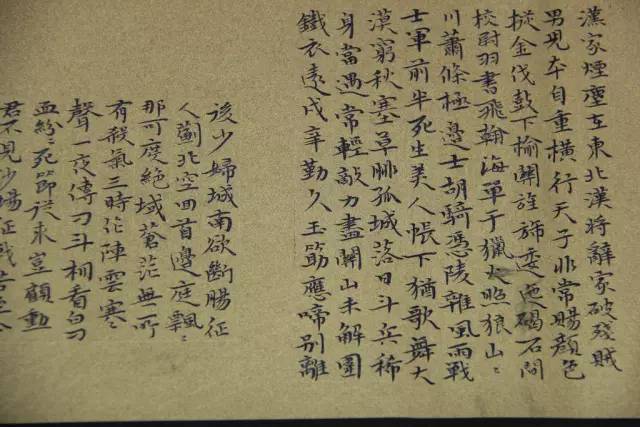 漢家煙塵在東北漢將辭家破殘賊
男兒本自重橫行天子非常賜顏色
摐金伐鼓下榆關旌旆委迤碣石間
校尉羽書飛瀚海單于獵火照狼山〻
川蕭條極邊士胡騎憑陵雜風雨戰
士軍前半死生美人帳下猶歌舞大
漠窮秋塞草腓孤城落日斗兵稀
身當遇常輕敵力盡關山未解圍
鐵衣遠戍辛勤久玉筯應啼別離
後少婦城南欲斷腸征
人薊北空回首邊庭飄〻
那可度絕域蒼茫無所
有殺氣三時作陣雲寒〻
聲一夜傳刁斗相看白刃
血紛〻死節從來豈顧勳
君不見沙場征戰苦至今